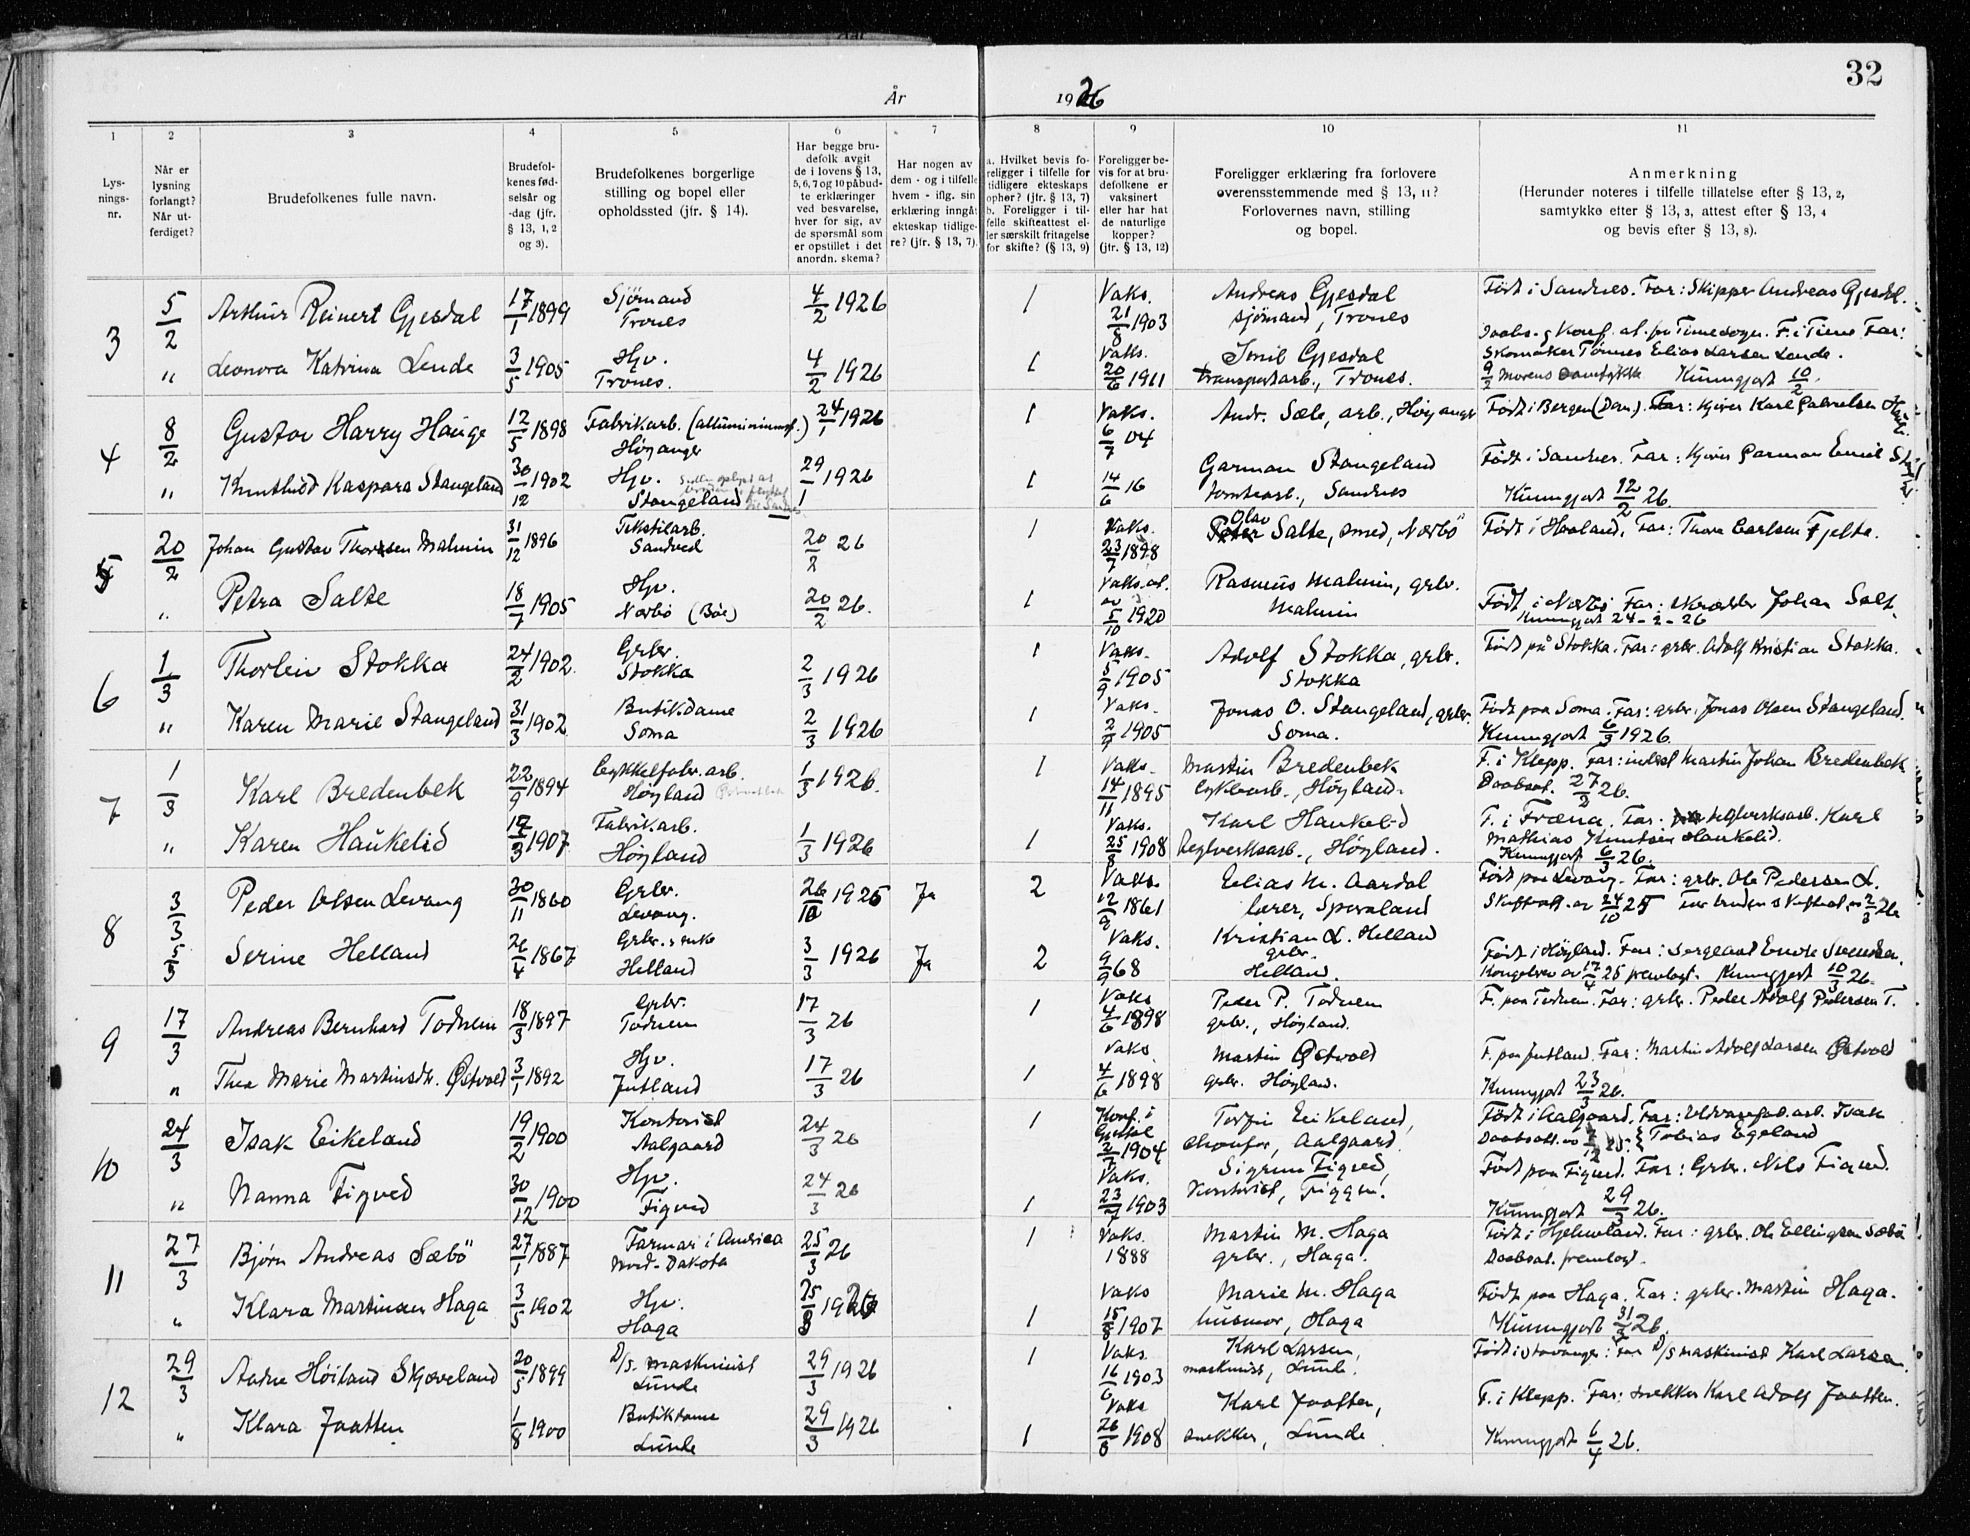 32
År 1926
1 2 3 4 5 6 7 8 9 10 11
Lysnings-nr.
Når er lysning forlangt? Når utferdiget?
Brudefolkenes fulle navn.
Brudefolkenes fødselsår og -dag (jfr. § 13, 1, 2 og 3).
Brudefolkenes borgerlige stilling og bopel eller opholdssted (jfr. § 14).
Har begge brudefolk avgit de i lovens § 13, 5, 6, 7 og 10 påbudte erklæringer ved besvarelse, hver for sig, av de spørsmål som er opstillet i det anordn. skema?
Har nogen av dem - og i tilfelle hvem - iflg. sin erklæring inngått ekteskap tidligere? (jfr. § 13, 7).
a. Hvilket bevis foreligger i tilfelle for tidligere ekteskaps ophør? (jfr. § 13, 7) b. Foreligger i tilfelle skifteattest eller særskilt fritagelse for skifte? (§ 13, 9)
Foreligger bevis for at brudefolkene er vaksinert eller har hat de naturlige kopper? (jfr. § 13, 12)
Foreligger erklæring fra forlovere overensstemmende med § 13, 11? Forlovernes navn, stilling og bopel.
Anmerkning (Herunder noteres i tilfelle tillatelse efter § 13, 2, samtykke efter § 13, 3, attest efter § 13, 4 og bevis efter § 13, 8).
3 5/2 Arthur Reinert Gjesdal 17/1 1899 Sjømand Trones 4/2 1926 1 Vaks. 21/8 1903 Andreas Gjesdal sjømand, Trones Født i Sandnes. Far: Skipper Andreas Gjesdal.
" Leonora Katrina Lende 3/5 1905 Hjv. Trones. 4/2 1926 1 Vaks. 20/6 1911 Emil Gjesdal transportarb., Trones. F. i Time Far: Skomaker Tønnes Elias Larsen Lende. 9/2 Morens samtykke Kunngjort 10/2.
4 8/2 Gustav Harry Hauge 12/5 1898 Fabrikarb. Høyanger 24/1 1926 1 Vaks. 6/7 04 Andr. Sæle, arb., Høyanger Født i Bergen (Dom). Far: Karl Gabrielsen
" Knuthild Kaspara Stangeland 30/12 1902 Hjv. Stangeland 29/1 1926 1 14/6 16 Garman Stangeland tomtearb., Sandnes Født i Sandnes. Far: Garman Emil Kunngjort 12/2 26.
5 20/2 Johan Gustav Thorsen Malmin 31/12 1896 Tekstilarb. Sandved 20/2 26 1 Vaks. 23/7 1898 Olav Salte, smed, Nærbö Født i Høiland, Far: Thore Carlsen Fjelte.
" Petra Salte 18/7 1905 Hjv. Nærbö (Böe) 20/2 26. 1 Vaks.at. av 5/10 1920 Rasmus Malmin, grbr. Malmin Født i Nærbö Far: skrædder Johan Salt. Kunngjort 24-2-26
6 1/3 Thorleiv Stokka 24/2 1902. Grbr. Stokka 2/3 1926 1 Vaks. 5/9 1905 Adolf Stokka, grbr. Stokka Født på Stokka. Far: grbr. Adolf Kristian Stokka.
" Karen Marie Stangeland 31/3 1902 Butikdame Soma 2/3 1926 1 Vaks. 2/9 1905 Jonas O. Stangeland, grbr. Soma. Født paa Soma. Far: grbr. Jonas Olsen Stangeland. Kunngjort 6/3 1926.
7 1/3 Karl Bredenbek 22/9 1894 Cykkelfabr.arb. Høyland 1/3 1926. 1 Vaks. 14/11 1895 Martin Bredenbek Høyland. F. i Klepp. Far: Martin Johan Bredenbek Daabsat. 27/2 26.
" Karen Haukelid 1907 Fabrikarb. Høyland 1/3 1926 1 Vaks. 25/8 1908 Karl Haukelid teglverksarb., Høyland. F. i Fræna. Far: teglverksarb. Karl Mathias Knutsen Haukelid. Kunngjort 6/3 26.
8 3/3 Peder Olsen Levang 30/11 1860 Grbr. Levang. 26/10 1925 Ja 2 Vaks. 1861 Elias M. Aardal lærer, Født paa Levang. Far: grbr. Ole Pedersen L. Skifteatt. av 24/10 25
5/3 Serine Helland 26/4 1867 Grbr.enke Helland 3/3 1926 Ja 2 Vaks. 9/9 68 Kristian L. Helland grbr. Helland. Født i Høyland. Far: Sergeant Endre Svendsen. Kongebrev av 17/4 25 fremlagt. Kunngjort 10/3 26.
9 17/3 Andreas Bernhard Todnem 18/3 1897 Grbr. Todnem 17/3 26 1 Vaks 4/6 1898 Peder P. Todnem grbr., Høyland. F. paa Todnem. Far: grbr. Peder Adolf Pedersen T.
" Thea Marie Martinsdtr. Østvold 3/1 1892 Hjv. Jutland 17/3 26 1 Vaks. 4/6 1898 Martin Østvold grbr. Høyland. F. paa Jutland. Far: Martin Adolf Larsen Østvold Kunngjort 23/3 26.
10 24/3 Isak Eikeland 19/2 1900 Kontorist Aalgaard 24/3 26 1 Konf. i Gjesdal 1904 Torfin Eikeland, Chaufør, Aalgaard. Født i Aalgaard. Far: Uldvarefab.arb. Isak Tobias Egeland
" Nanna Figved 30/12 1900 Hjv. Figved 24/3 26 1 Vaks. 23/7 1903 Sigrun Figved, Kontorist, Figgen. Født paa Figved. Far: Grbr. Nils Figved. Kunngjort 29/3 26.
11 27/3 Bjørn Andreas Sæbö 27/1 1887 Farmar i Amrica Nord-Dakota 25/3 26 1 Vaks. 1888 Martin M. Haga grbr., Haga. Født i Hjelmeland. Far: grbr. Ole Ellingsen Sæbö Daabsat. fremlagt.
" Klara Martinsen Haga 3/5 1902 Hjv. Haga 25/3 1926 1 Vaks 15/8 1907 Marie M. Haga husmor, Haga Født paa Haga. Far: grbr. Martin Haga. Kunngjort 31/3 26.
12 29/3 Andre Høiland Skjæveland 20/5 1899 D/S. maskinist Lunde 29/3 1926 1 Vaks. 16/6 1903 Karl Larsen, maskinist, Lunde. Født i Stavanger: Far D/S maskinist Karl Larsen.
" Klara Jaatten 1/8 1900 Butikdame Lunde 29/3 1926 1 Vaks 26/8 1908 Karl Jaatten, snekker, Lunde F. i Klepp. Far: snekker Karl Adolf Jaatten. Kunngjort 6/4 26.